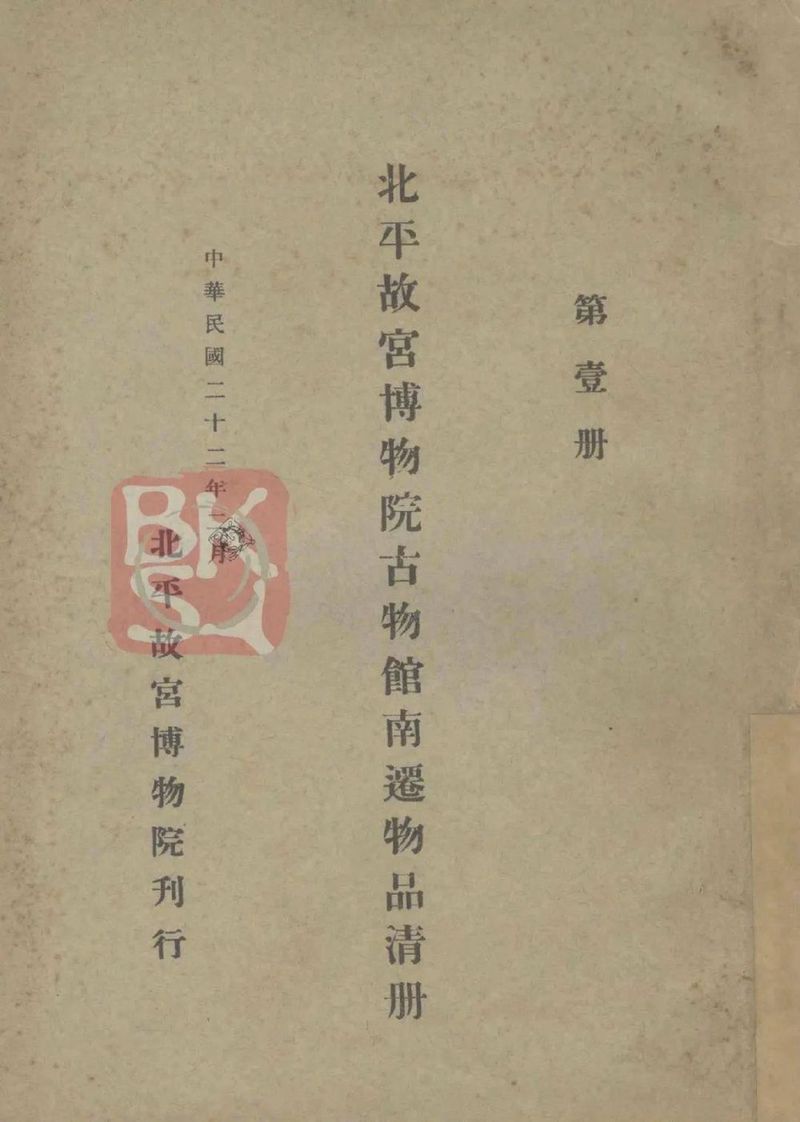 第壹册
北平故宮博物院古物館南遷物品清册
中華民國二十二年二月
北平故宮博物院刊行
BK
SJ